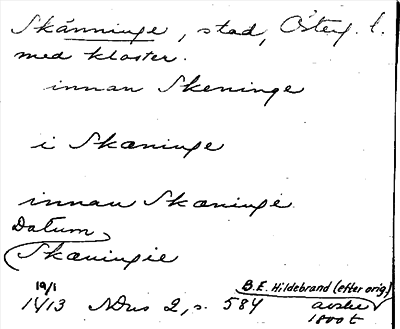 Skänninge, stad, Österg. l.
med kloster.
innan Skeninge
i Skæninge
innan Skæninge
Datum
Skæningie
19/1
1413 NDns 2, s. 584
B.E. Hildebrand (efter orig)
avskr
1800 t